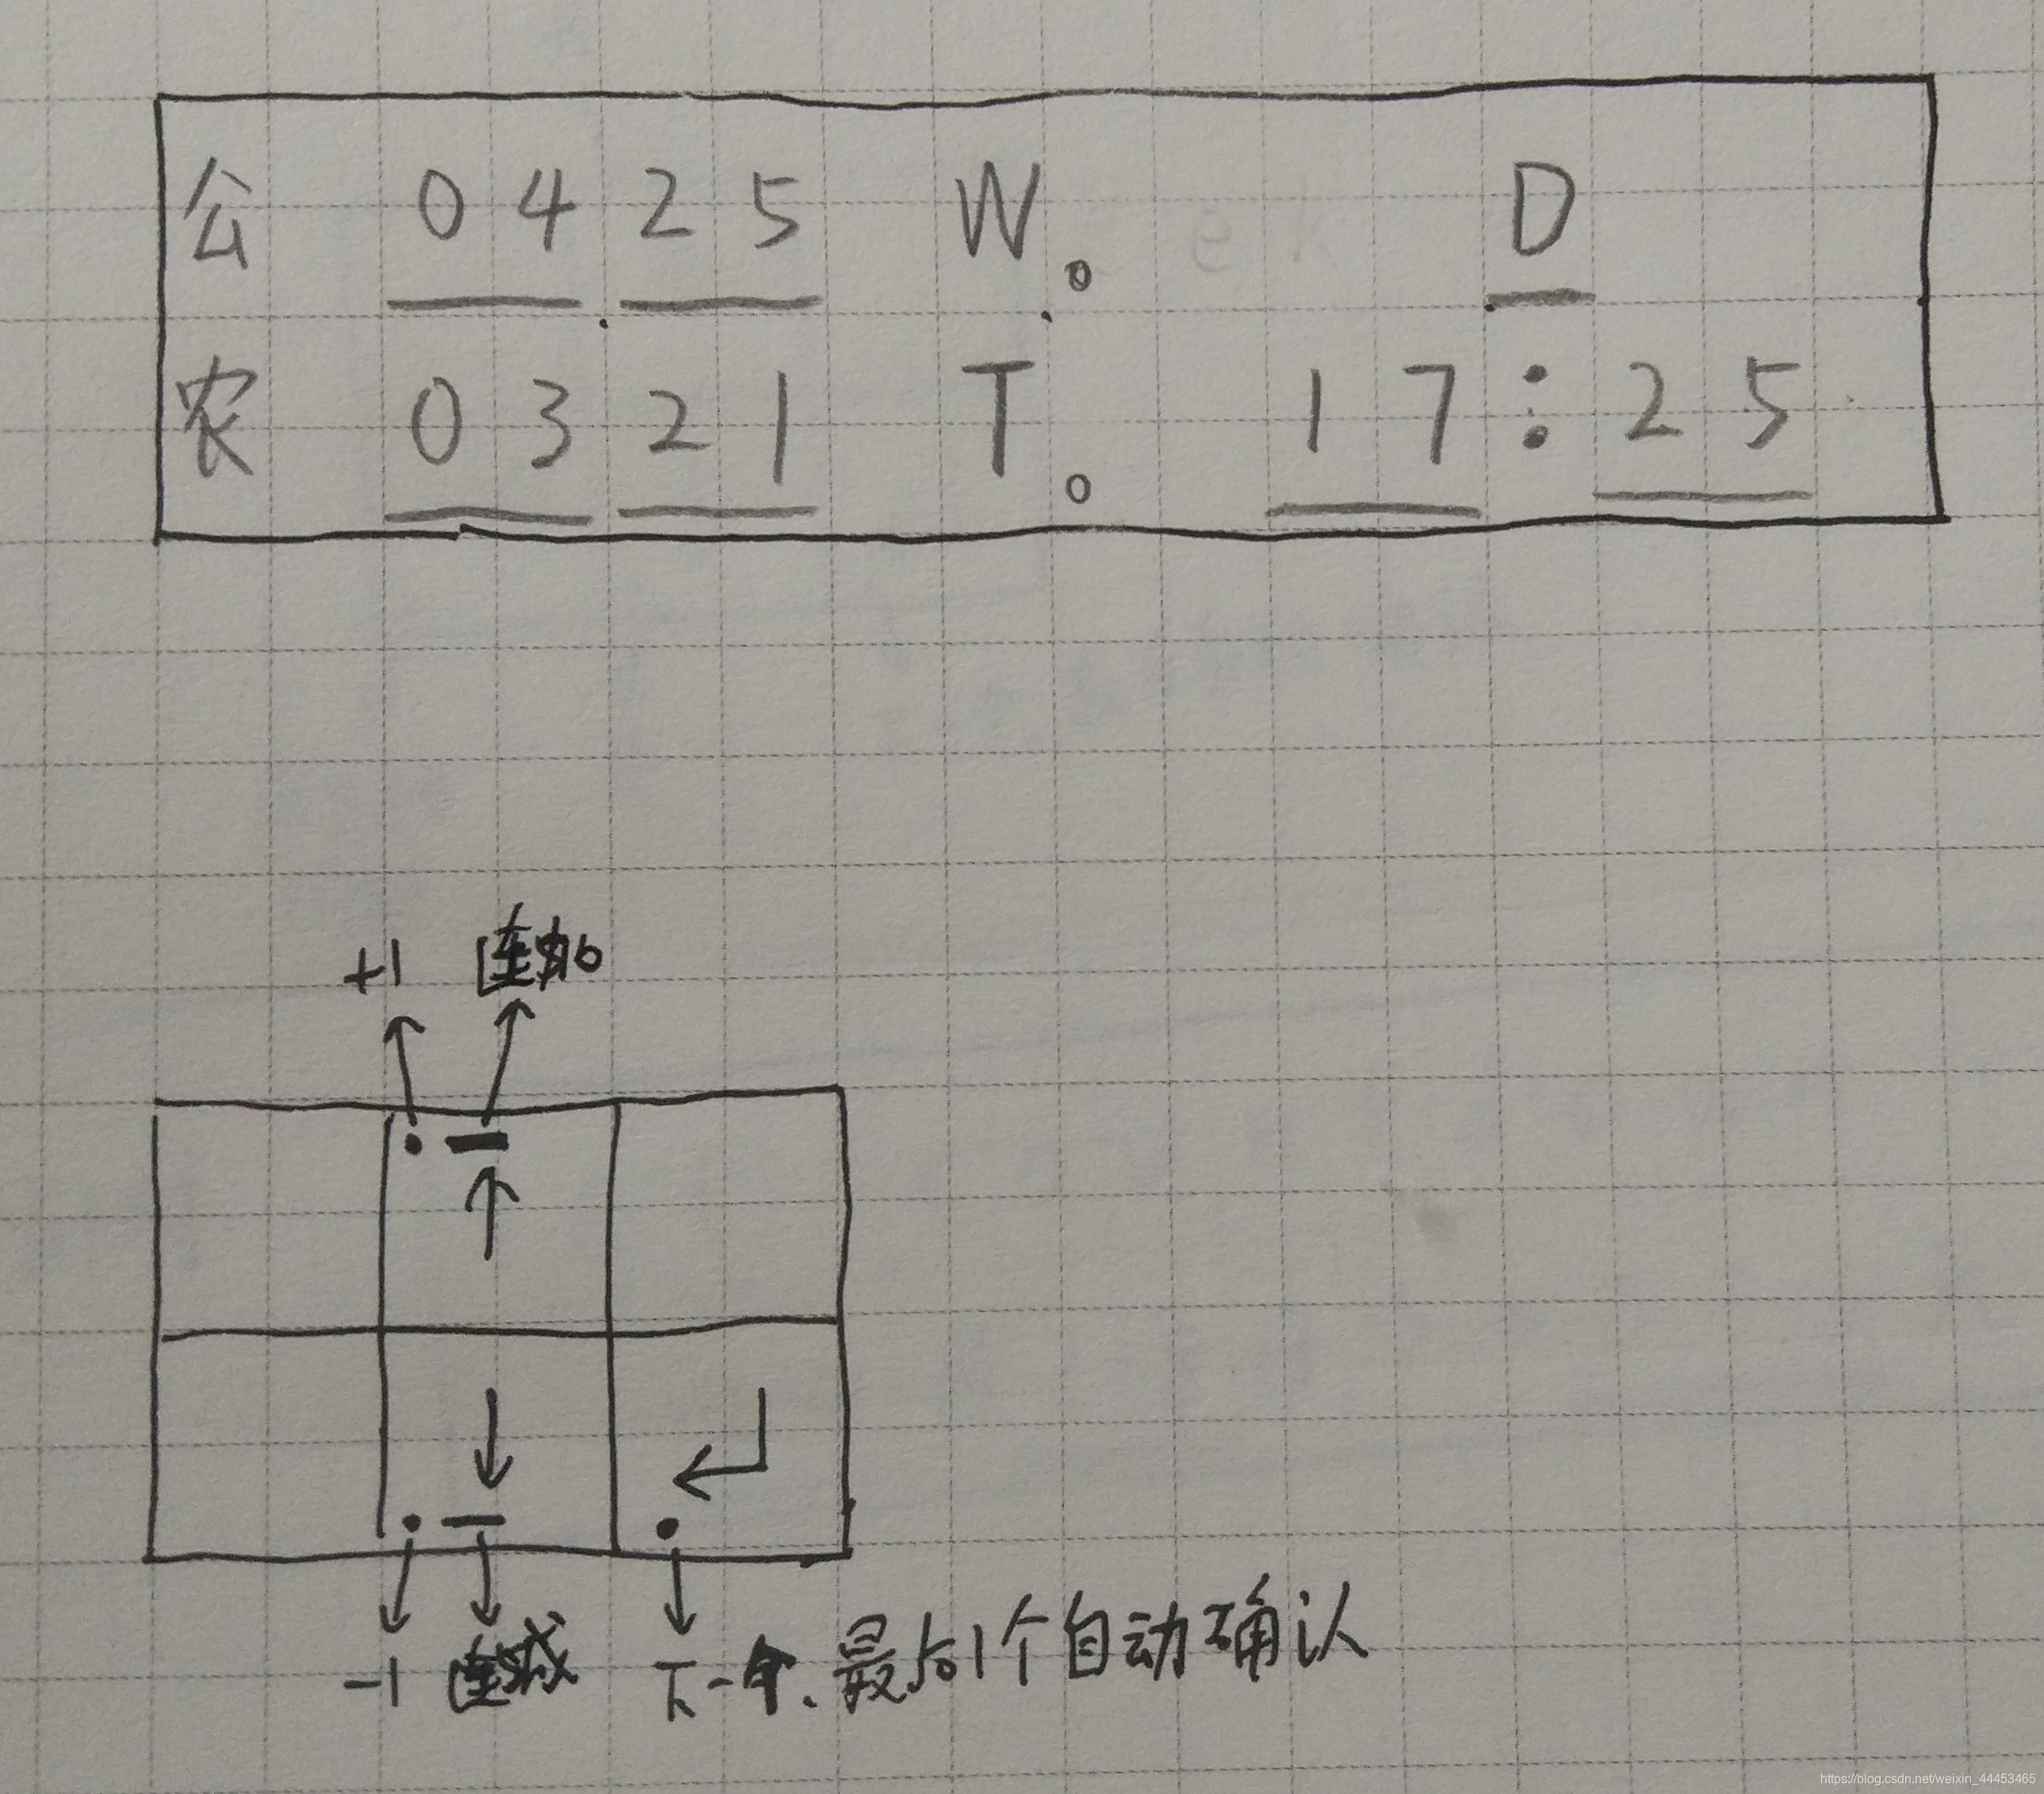 公 04 25 W。 D
农 03 21 T。 17:25
+1 连加
-1 连减 下一个、最后1个自动确认
https://blog.csdn.net/weixin_44453465